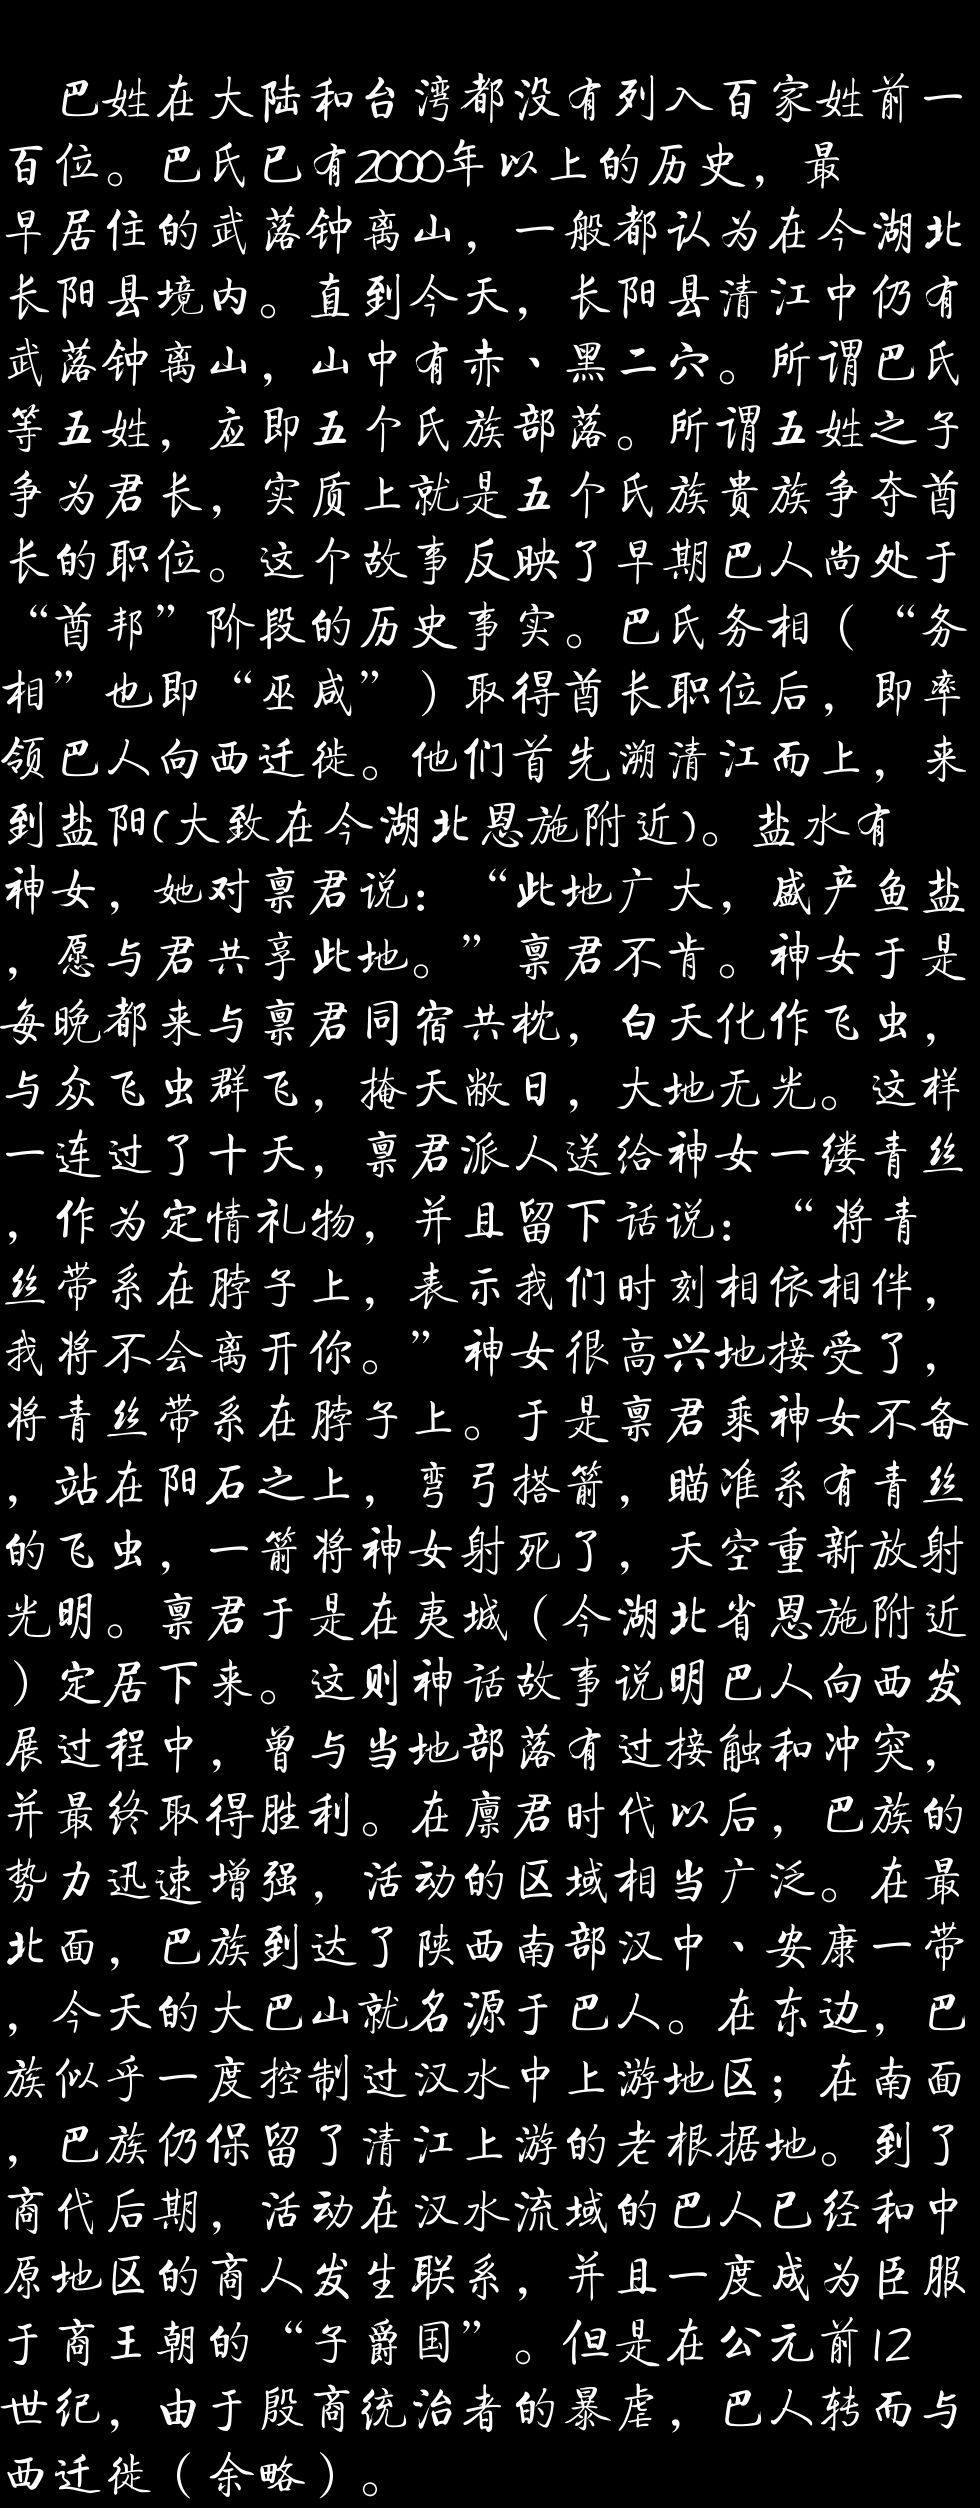 巴姓在大陆和台湾都没有列入百家姓前一
百位。巴氏已有2000年以上的历史，最
早居住的武落钟离山，一般都认为在今湖北
长阳县境内。直到今天，长阳县清江中仍有
武落钟离山，山中有赤、黑二穴。所谓巴氏
等五姓，应即五个氏族部落。所谓五姓之子
争为君长，实质上就是五个氏族贵族争夺酋
长的职位。这个故事反映了早期巴人尚处于
“酋邦”阶段的历史事实。巴氏务相（“务
相”也即“巫咸”）取得酋长职位后，即率
领巴人向西迁徙。他们首先溯清江而上，来
到盐阳(大致在今湖北恩施附近)。盐水有
神女，她对禀君说：“此地广大，盛产鱼盐
，愿与君共享此地。”禀君不肯。神女于是
每晚都来与禀君同宿共枕，白天化作飞虫，
与众飞虫群飞，掩天敝日，大地无光。这样
一连过了十天，禀君派人送给神女一缕青丝
，作为定情礼物，并且留下话说：“将青
丝带系在脖子上，表示我们时刻相依相伴，
我将不会离开你。”神女很高兴地接受了，
将青丝带系在脖子上。于是禀君乘神女不备
，站在阳石之上，弯弓搭箭，瞄准系有青丝
的飞虫，一箭将神女射死了，天空重新放射
光明。禀君于是在夷城（今湖北省恩施附近
）定居下来。这则神话故事说明巴人向西发
展过程中，曾与当地部落有过接触和冲突，
并最终取得胜利。在廪君时代以后，巴族的
势力迅速增强，活动的区域相当广泛。在最
北面，巴族到达了陕西南部汉中、安康一带
，今天的大巴山就名源于巴人。在东边，巴
族似乎一度控制过汉水中上游地区；在南面
，巴族仍保留了清江上游的老根据地。到了
商代后期，活动在汉水流域的巴人已经和中
原地区的商人发生联系，并且一度成为臣服
于商王朝的“子爵国”。但是在公元前12
世纪，由于殷商统治者的暴虐，巴人转而与
西迁徙（余略）。